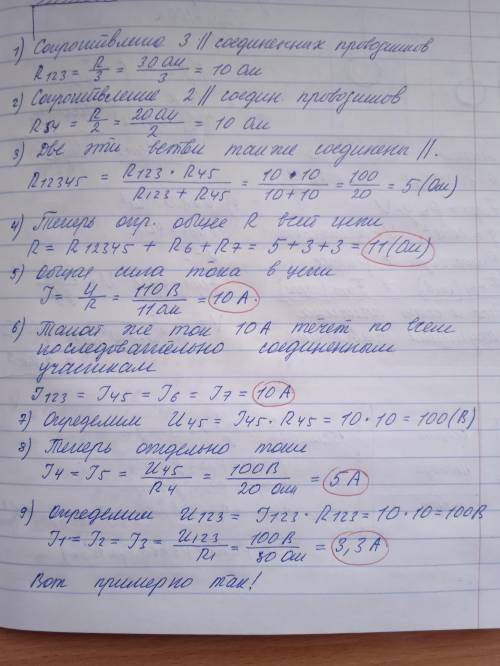 1) Сопротивление 3 || соединенных проводников
R123 = R/3 = 30 Ом/3 = 10 Ом
2) Сопротивление 2 || соедин. проводников
R54 = R/2 = 20 Ом/2 = 10 Ом
3) Две эти ветви также соединены ||.
R12345 = R123 · R45 / R123 + R45 = 10 · 10 / 10 + 10 = 100/20 = 5 (Ом)
4) Теперь опр. общее R всей цепи
R = R12345 + R6 + R7 = 5 + 3 + 3 = 11 (Ом)
5) Общая сила тока в цепи
I = U/R = 110 В/11 Ом = 10 А.
6) Такой же ток 10 А течет по всем
последовательно соединенным
участкам
I123 = I45 = I6 = I7 = 10 А
7) Определим U45 = I45 · R45 = 10 · 10 = 100 (В)
8) Теперь отдельно токи
I4 = I5 = U45/R4 = 100 В/20 Ом = 5 А
9) Определим U123 = I123 · R123 = 10 · 10 = 100 В
I1 = I2 = I3 = U123/R1 = 100 В/30 Ом = 3,3 А
Вот примерно так!